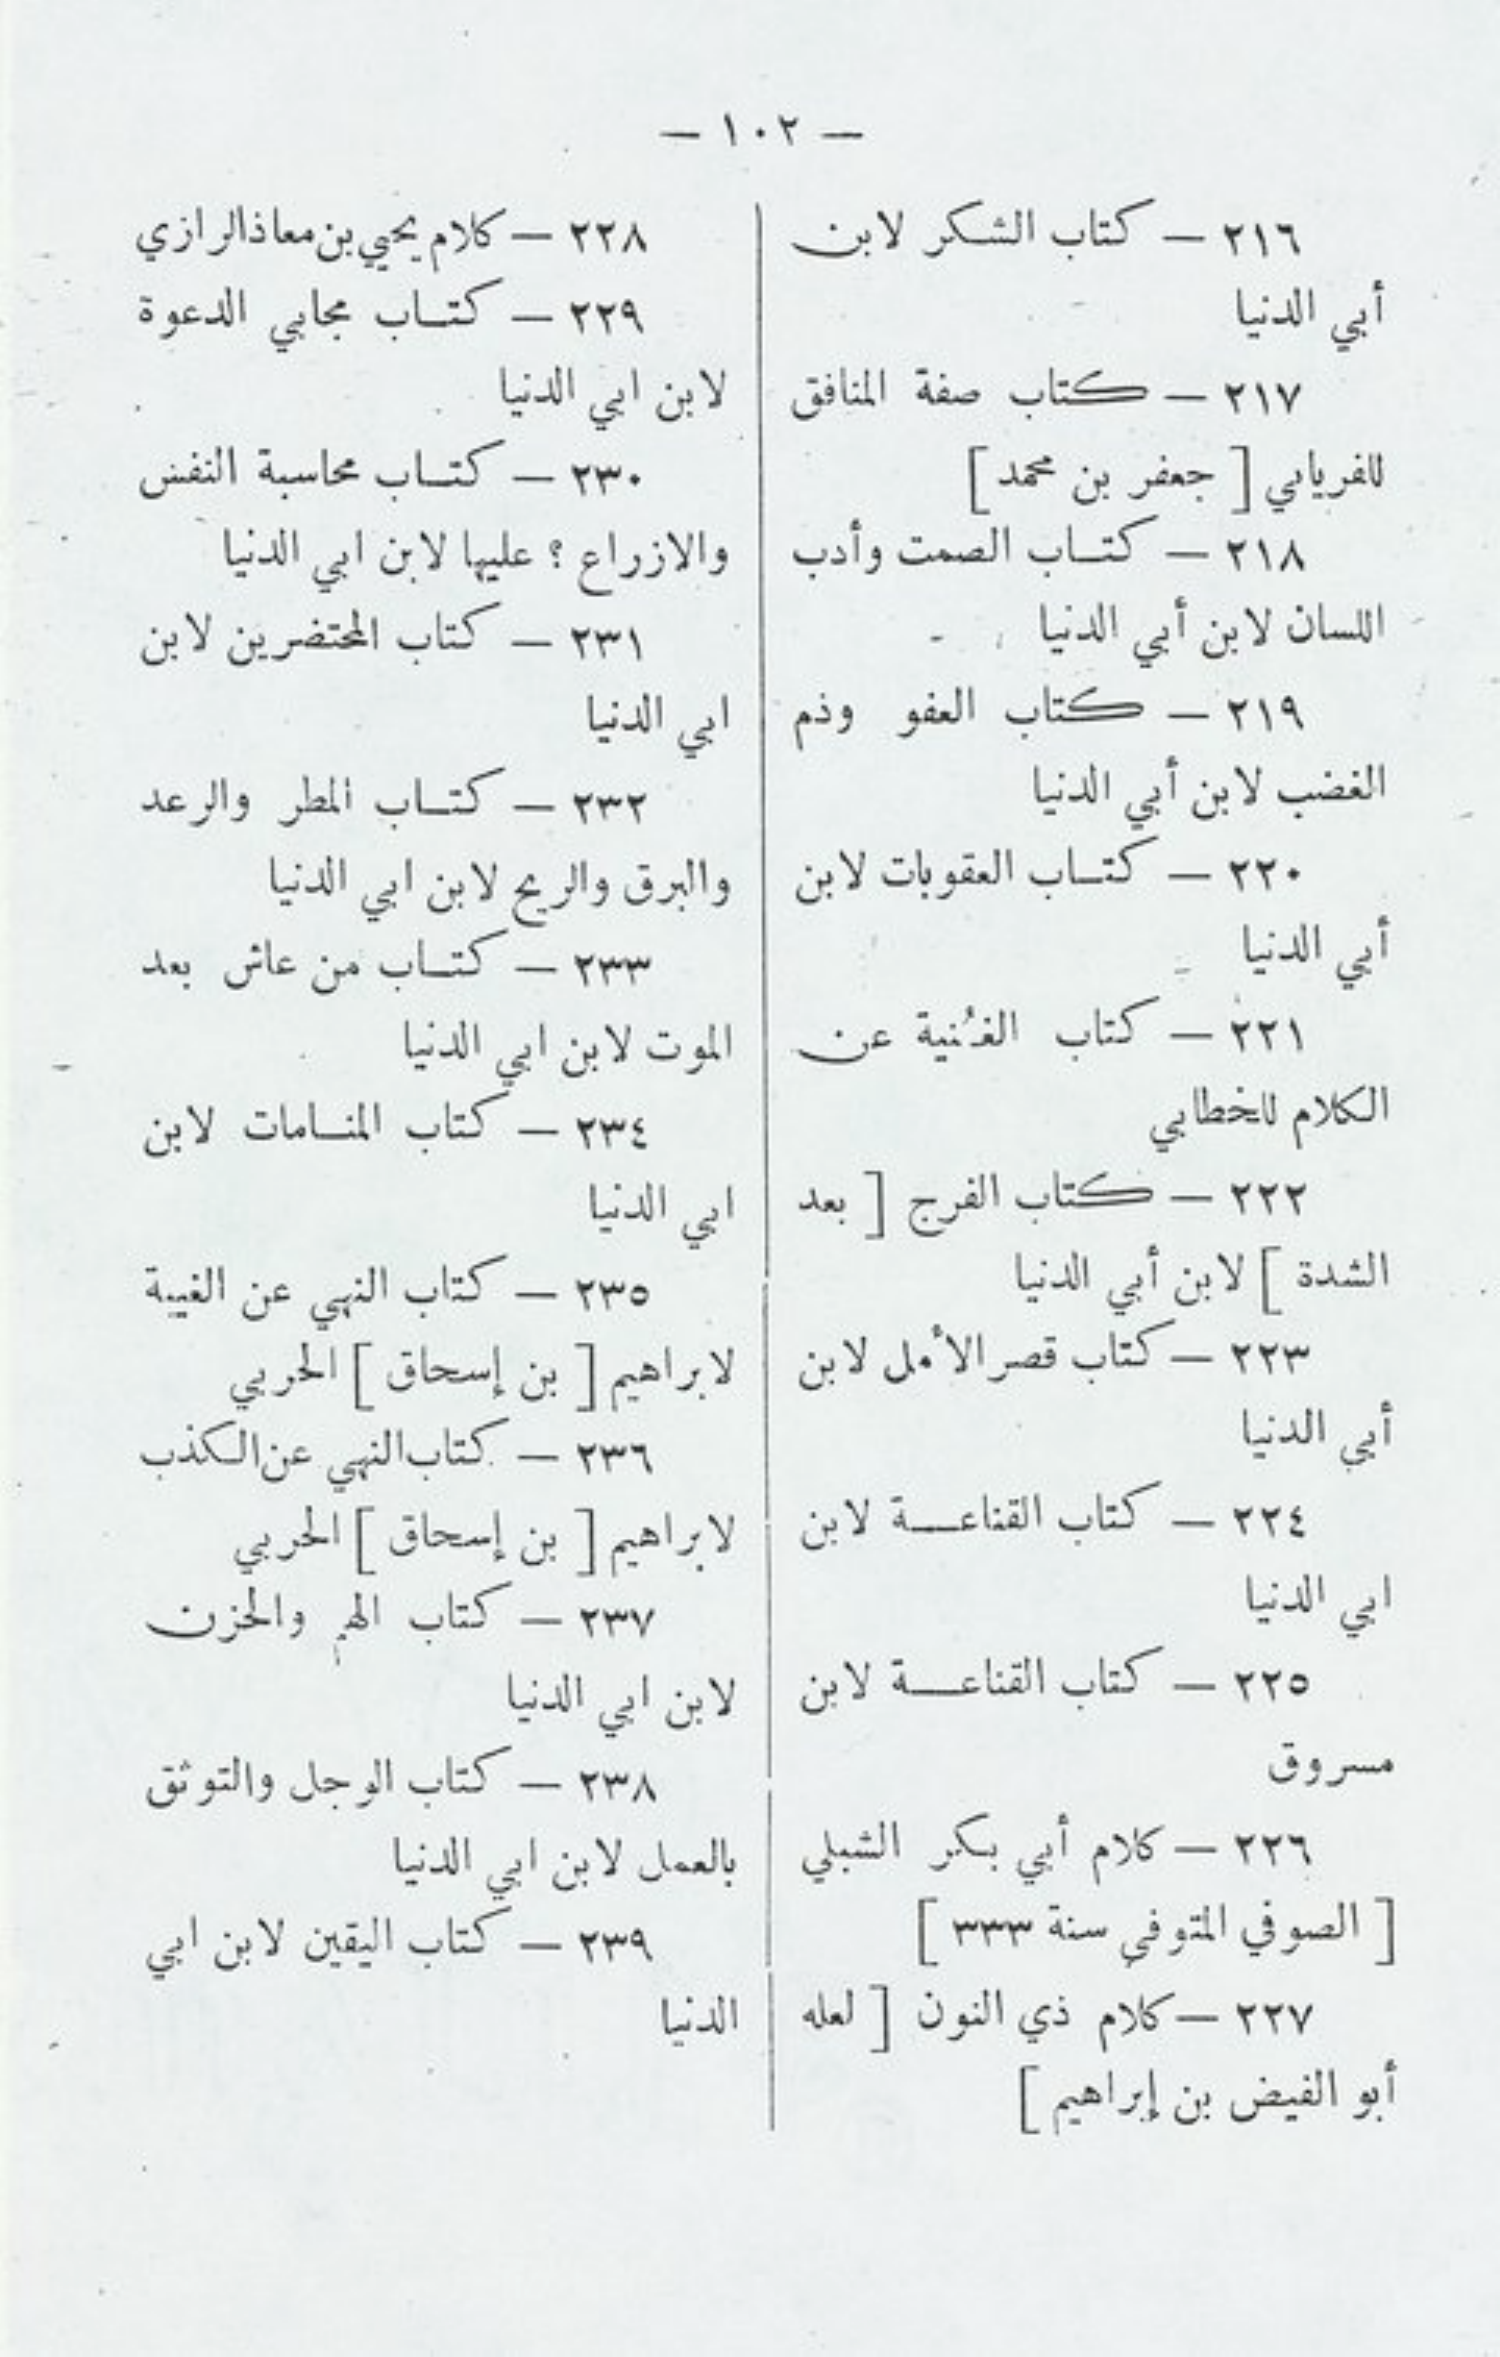 — ١٠٢ —
٢١٦ — كتاب الشكر لابن
أبي الدنيا
٢١٧ — كتاب صفة المنافق
للفريابي [ جعفر بن محمد ]
٢١٨ — كتـاب الصمت وأدب
اللسان لابن أبي الدنيا
٢١٩ — كتاب العفو وذم
الغضب لابن أبي الدنيا
٢٢٠ — كتـاب العقوبات لابن
أبي الدنيا
٢٢١ — كتاب الغُنية عن
الكلام للخطابي
٢٢٢ — كتاب الفرج [ بعد
الشدة ] لابن أبي الدنيا
٢٢٣ — كتاب قصر الأمل لابن
أبي الدنيا
٢٢٤ — كتاب القناعـة لابن
ابي الدنيا
٢٢٥ — كتاب القناعـة لابن
مسروق
٢٢٦ — كلام أبي بكر الشبلي
[ الصوفي المتوفى سنة ٣٣٣ ]
٢٢٧ — كلام ذي النون [ لعله
أبو الفيض بن إبراهيم ]
٢٢٨ — كلام يحيي بن معاذ الرازي
٢٢٩ — كتـاب مجابي الدعوة
لابن ابي الدنيا
٢٣٠ — كتـاب محاسبة النفس
والازراع ؟ عليها لابن ابي الدنيا
٢٣١ — كتاب المحتضرين لابن
ابي الدنيا
٢٣٢ — كتـاب المطر والرعد
والبرق والريح لابن ابي الدنيا
٢٣٣ — كتـاب من عاش بعد
الموت لابن ابي الدنيا
٢٣٤ — كتاب المنـامات لابن
ابي الدنيا
٢٣٥ — كتاب النهي عن الغيبة
لابراهيم [ بن إسحاق ] الحربي
٢٣٦ — كتاب النهي عن الكذب
لابراهيم [ بن إسحاق ] الحربي
٢٣٧ — كتاب الهم والحزن
لابن ابي الدنيا
٢٣٨ — كتاب الوجل والتوثق
بالعمل لابن ابي الدنيا
٢٣٩ — كتاب اليقين لابن ابي
الدنيا